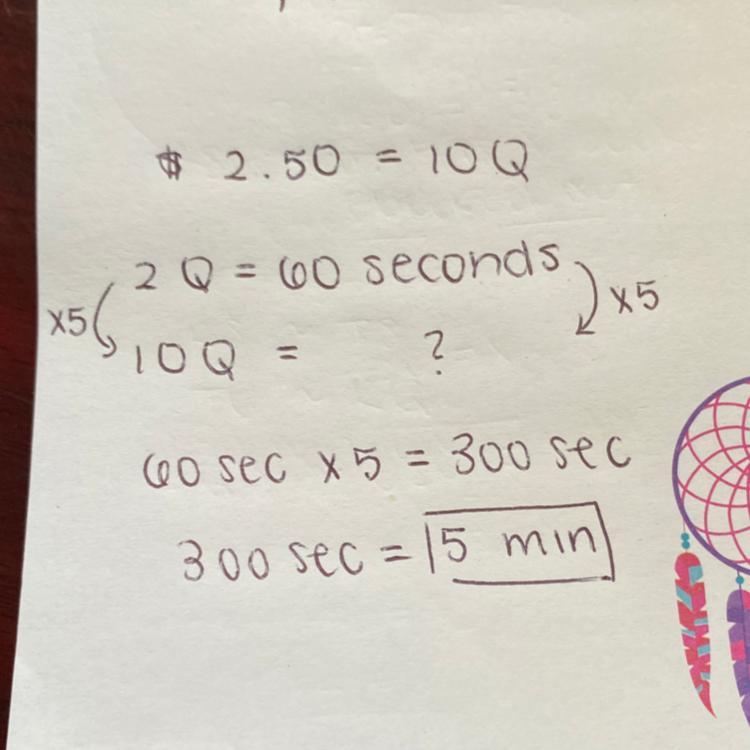 $ 2.50 = 10 Q
2 Q = 60 seconds
x5 x5
10 Q = ?
60 sec x 5 = 300 sec
300 sec = 5 min